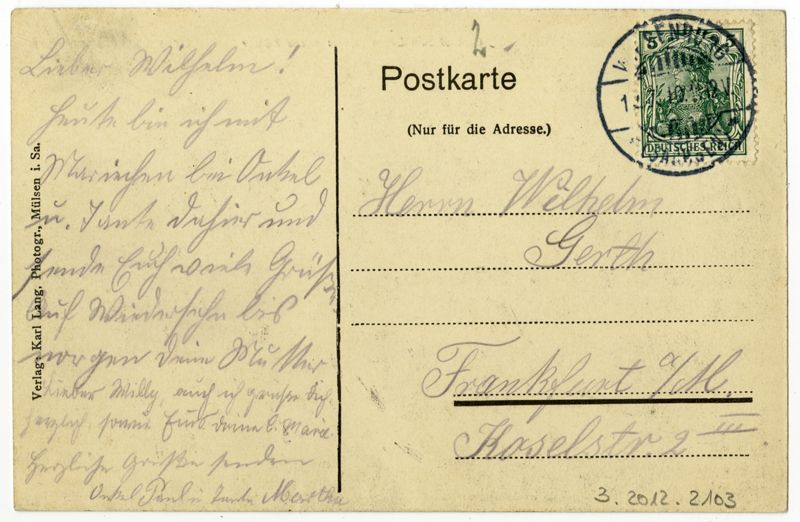 2.
Postkarte
(Nur für die Adresse.)
DEUTSCHES REICH
5
Verlag: Karl Lang, Photogr., Mülsen i. Sa.
Lieber Wilhelm!
Heute bin ich mit
Mariechen bei Onkel
u. Tante dahier und
sende Euch viele Grüße
Auf Wiedersehn bis
morgen deine Mutter
Lieber Willy, auch ich grüße dich
herzlich, sowie Euch deine l. Marie
Herzliche Grüße senden
Onkel Paul u Tante Martha
Herrn Wilhelm
Gerth
Frankfurt a/M,
Koselstr. 2 III
3. 2012. 2103